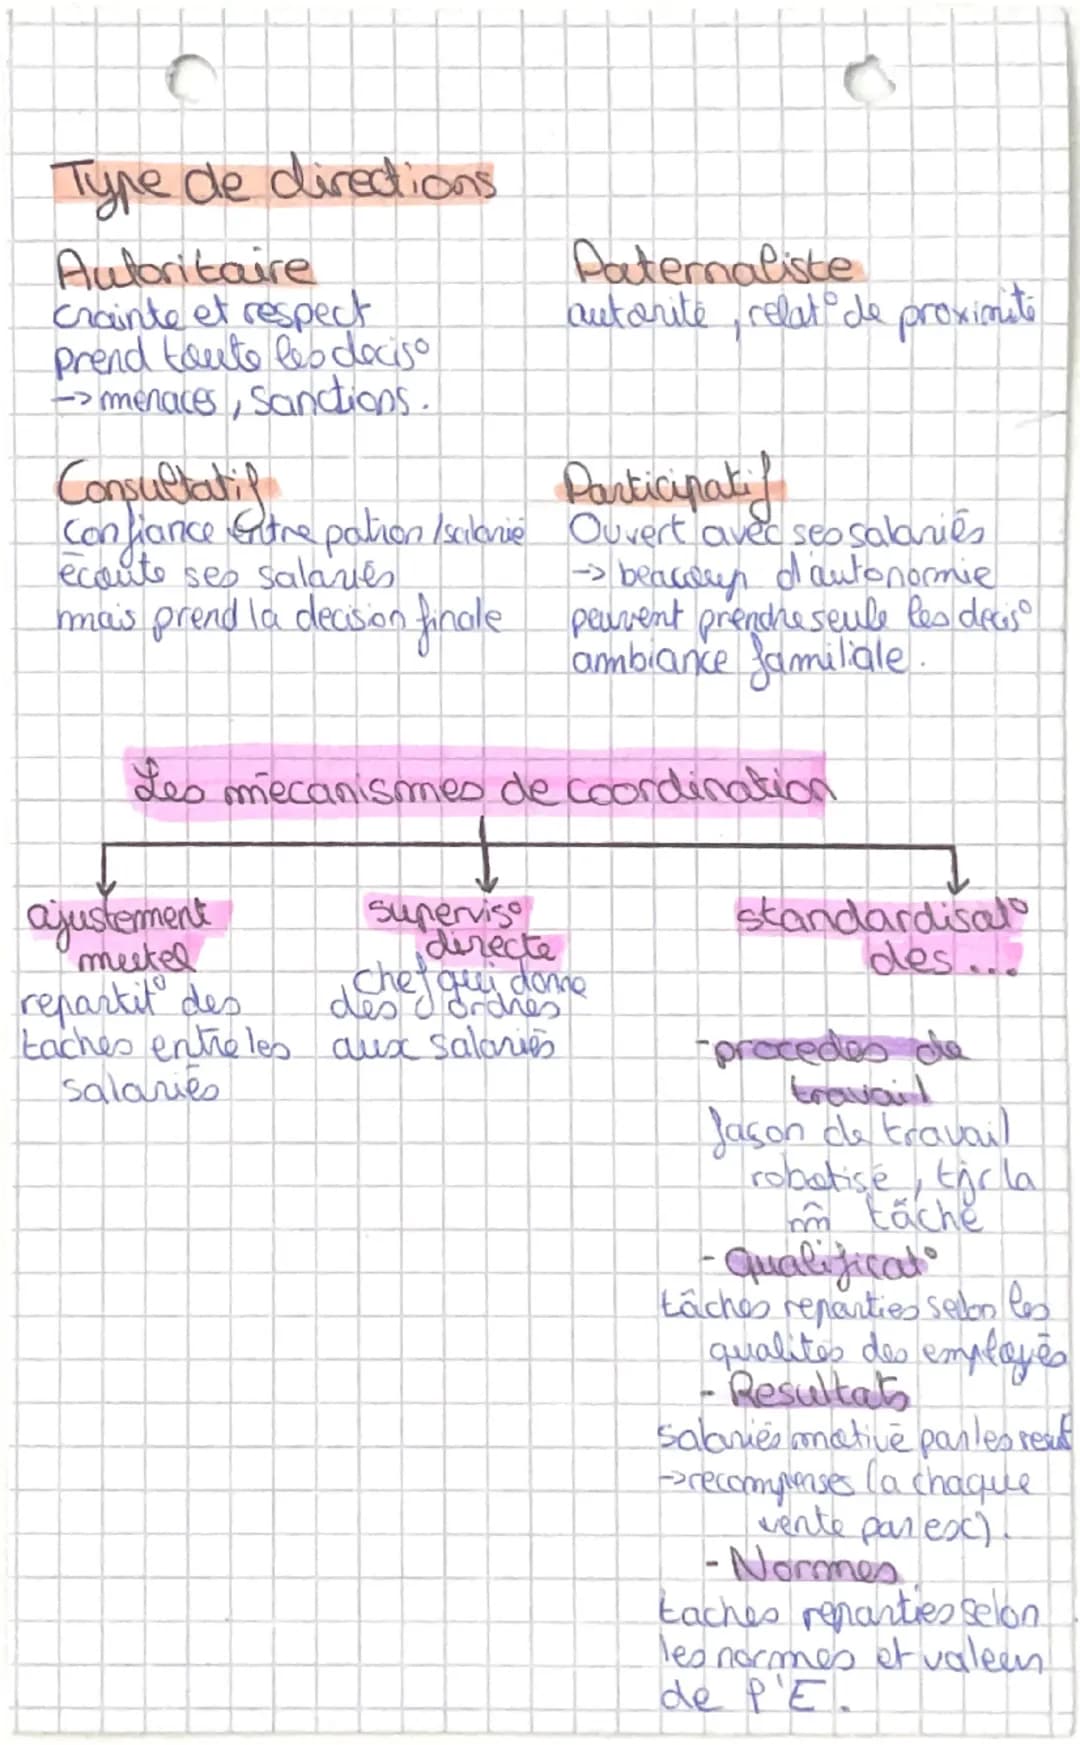 Type de directions
Autoritaire
crainte et respect
prend toute les decis°
-> menaces, sanctions.
Paternaliste
autorité, relat° de proximité
Consultatif
Confiance entre patron/salarié
écoute ses salariés
mais prend la decision finale
Participatif
Ouvert avec ses salariés
-> beaucoup d'autonormie
peuvent prendre seule les decis°
ambiance familiale.
Les mécanismes de coordination
ajustement
mutel
repartit° des
taches entre les
salariés
supervis°
directe
chef qui donne
des ordres
aux salariés
standardisat°
des...
- procedes de
travail
façon de travail
robotisé, tjr la
m̂ tâche
- Qualificat°
tâches reparties selon les
qualités des employés
- Resultats
salariés motivé par les result
-> recompenses (a chaque
vente par ex).
- Normes
taches reparties selon
les normes et valeurs
de l'E.